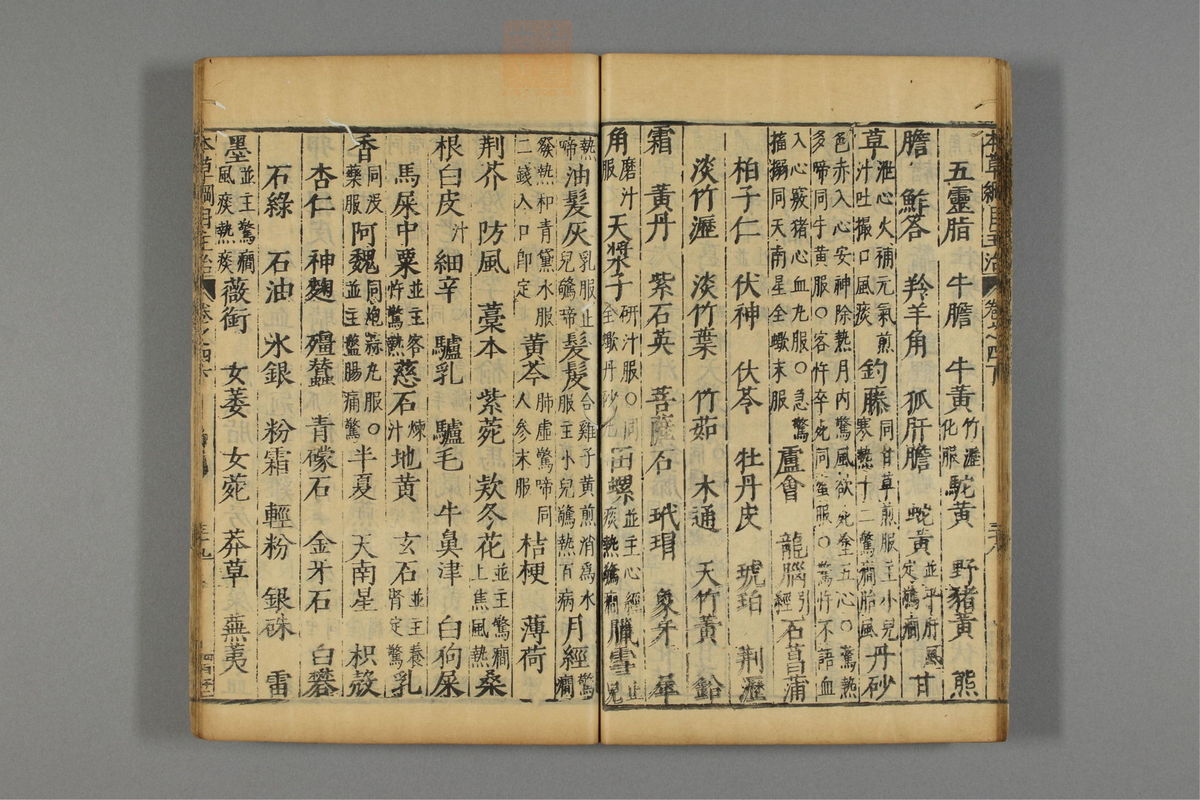 本草綱目主治 卷之四下
五靈脂 牛膽 牛黃竹瀝化服 駝黃 野豬黃 熊
膽 鮓荅 羚羊角 狐肝膽 蛇黃並平肝風定驚癇 甘
草泄心火補元氣煎汁吐撮口風痰 釣藤同甘草煎服主小兒寒熱十二驚癇胎風 丹砂
色赤入心安神除熱月內驚風欲死塗五心○驚熱
多啼同牛黃服○客忤卒死同蜜服○驚忤不語血
入心竅猪心血丸服○急驚搐搦同天南星全蠍末服 盧會 龍腦引經 石菖蒲
柏子仁 伏神 伏苓 牡丹皮 琥珀 荆瀝
淡竹瀝 淡竹葉 竹茹 木通 天竹黃 鉛
霜 黃丹 紫石英 菩薩石 玳瑁 象牙 犀
角磨汁服 天漿子研汁服○同全蠍丹砂 田螺並主心經痰熱驚癇 臘雪止兒
熱啼 油髮灰乳服止兒驚啼 髮髲合雞子黃煎消爲水服主小兒驚熱百病 月經驚癇
發熱和青黛水服二錢入口卽定 黃芩肺虛驚啼同人參末服 桔梗 薄荷
荆芥 防風 藁本 紫菀 欵冬花並主驚癇上焦風熱 桑
根白皮汁 細辛 驢乳 驢毛 牛鼻津 白狗屎
馬屎中粟並主客忤驚熱 慈石煉汁 地黃 玄石並主養腎定驚 乳
香同沒藥服 阿魏同炮蒜丸服○並主盤腸痛驚 半夏 天南星 枳殼
杏仁 神麯 殭蠶 青礞石 金牙石 白礬
石綠 石油 水銀 粉霜 輕粉 銀硃 雷
墨並主驚癇風痰熱痰 薇銜 女萎 女菀 莽草 蕪荑
本草綱目主治 卷之四下 三十九